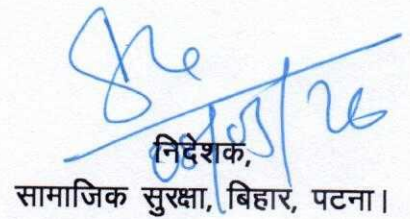 निदेशक,
सामाजिक सुरक्षा, बिहार, पटना।